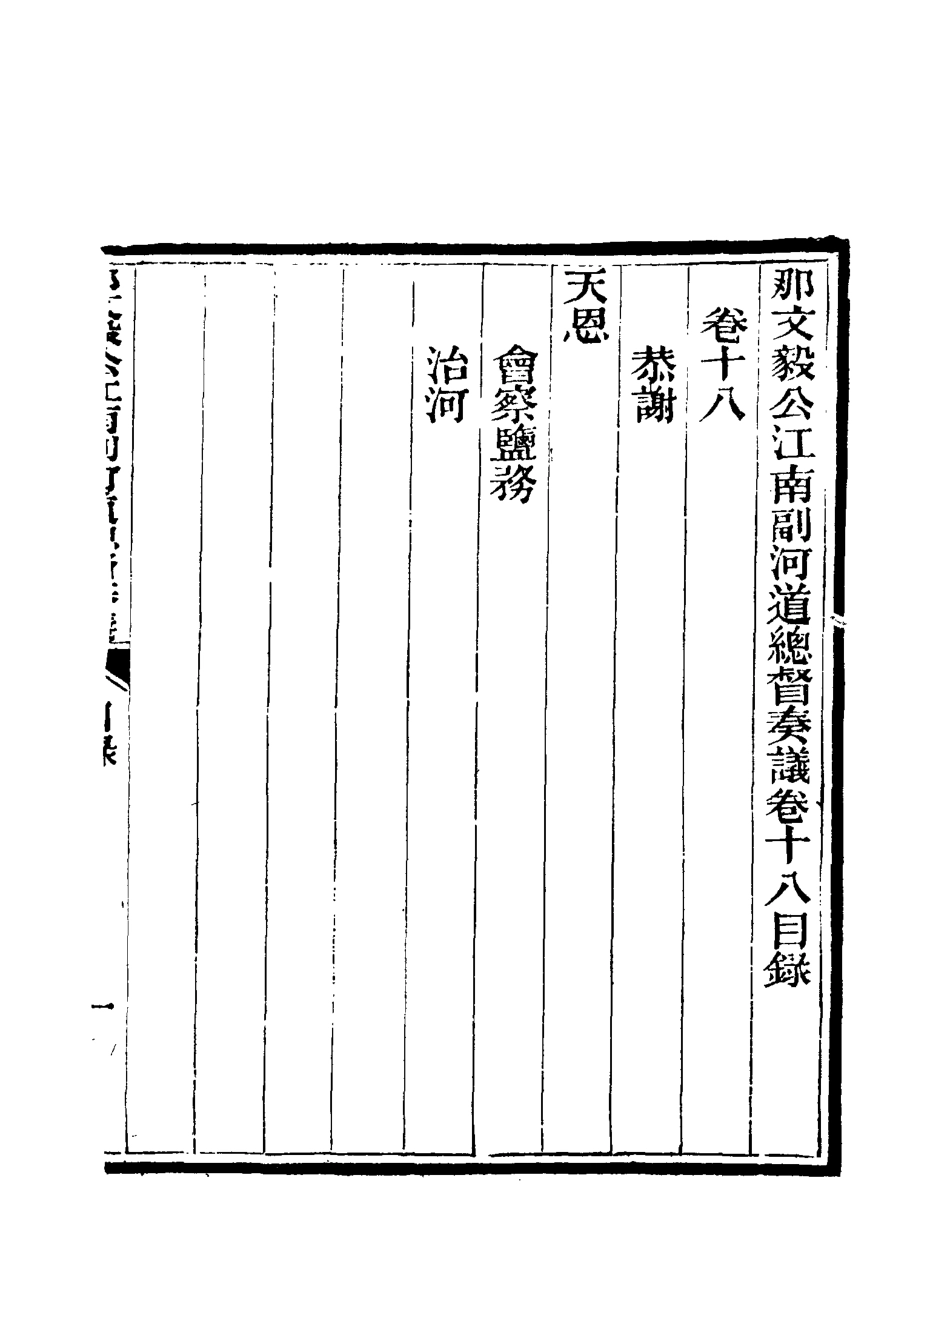 那文毅公江南副河道總督奏議卷十八目錄
卷十八
恭謝
天恩
會察鹽務
治河
目錄
一